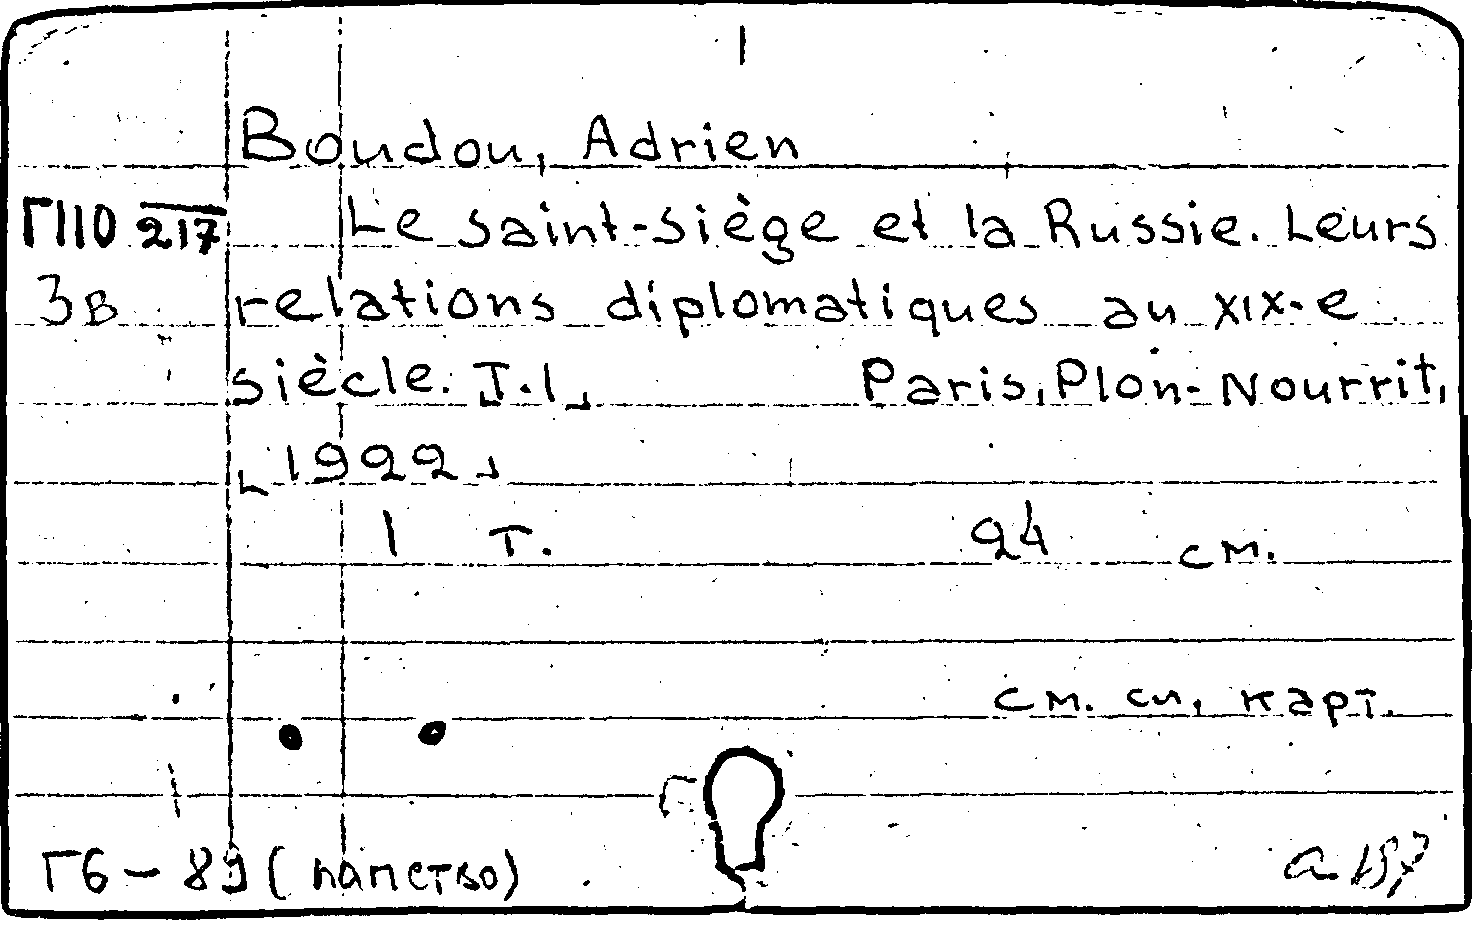 1
Boudou, Adrien
ГIIO 217 Le saint-siège et la Russie. Leurs
3в relations diplomatiques au XIX-e
siècle. T.1. Paris, Plon-Nourrit,
[1922]
1 т. 24 см.
см. сл. карт.
Г6 - 89 (папство) а-157